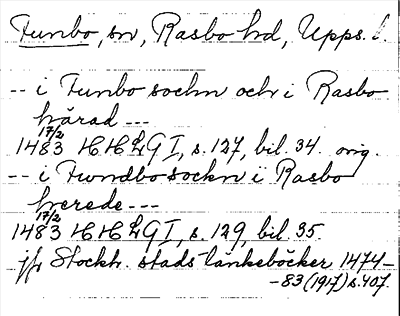 Funbo, sn, Rasbo hd, Upps. l.
-- i Funbo sockn och i Rasbo
härad ---
17/2
1483 HH LG I, s. 127, bil. 34. orig.
-- i Fwndbo sockn i Rasbo
herede ---
17/2
1483 HH LG I, s. 129, bil. 35.
jfr Stockh. stads tänkeböcker 1474-
-83 (1917) s. 407.